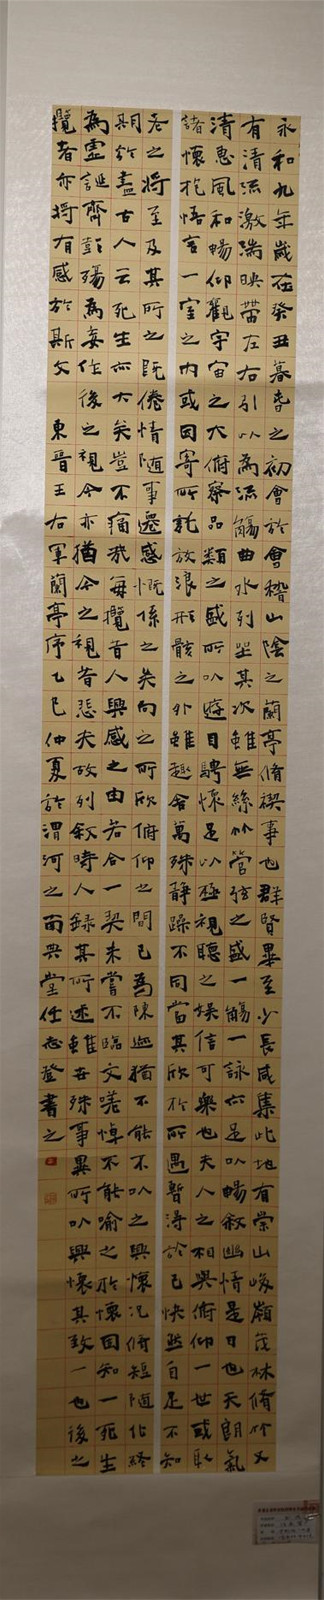 永和九年歲在癸丑暮春之初會於會稽山陰之蘭亭脩禊事也群賢畢至少長咸集此地有崇山峻嶺茂林脩竹又
有清流激湍映帶左右引以為流觴曲水列坐其次雖無絲竹管弦之盛一觴一詠亦足以暢敘幽情是日也天朗氣
清惠風和暢仰觀宇宙之大俯察品類之盛所以遊目騁懷足以極視聽之娛信可樂也夫人之相與俯仰一世或取
諸懷抱悟言一室之內或因寄所託放浪形骸之外雖趣舍萬殊靜躁不同當其欣於所遇暫得於己快然自足不知
老之將至及其所之既倦情隨事遷感慨係之矣向之所欣俯仰之間已為陳迹猶不能不以之興懷況脩短隨化終
期於盡古人云死生亦大矣豈不痛哉每攬昔人興感之由若合一契未嘗不臨文嗟悼不能喻之於懷固知一死生
為虛誕齊彭殤為妄作後之視今亦猶今之視昔悲夫故列敘時人錄其所述雖世殊事異所以興懷其致一也後之
攬者亦將有感於斯文 東晉王右軍蘭亭序乙巳仲夏於渭河之南興堂任志登書之